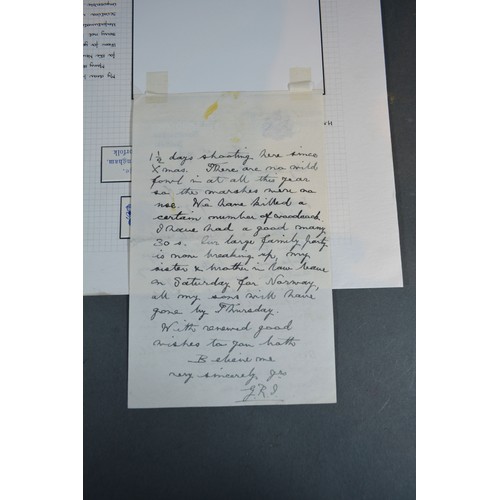 1½ days shooting here since
Xmas. There are no wild
fowl in at all this year
so the marshes were no
use. We have killed a
certain number of woodcock
I have had a good many
30 s. Our large family party
is now breaking up, my
sister & brother in law leave
on Saturday for Norway,
all my sons will have
gone by Thursday.
With renewed good
wishes to you both
Believe me
very sincerely yrs
G.R.I.
My